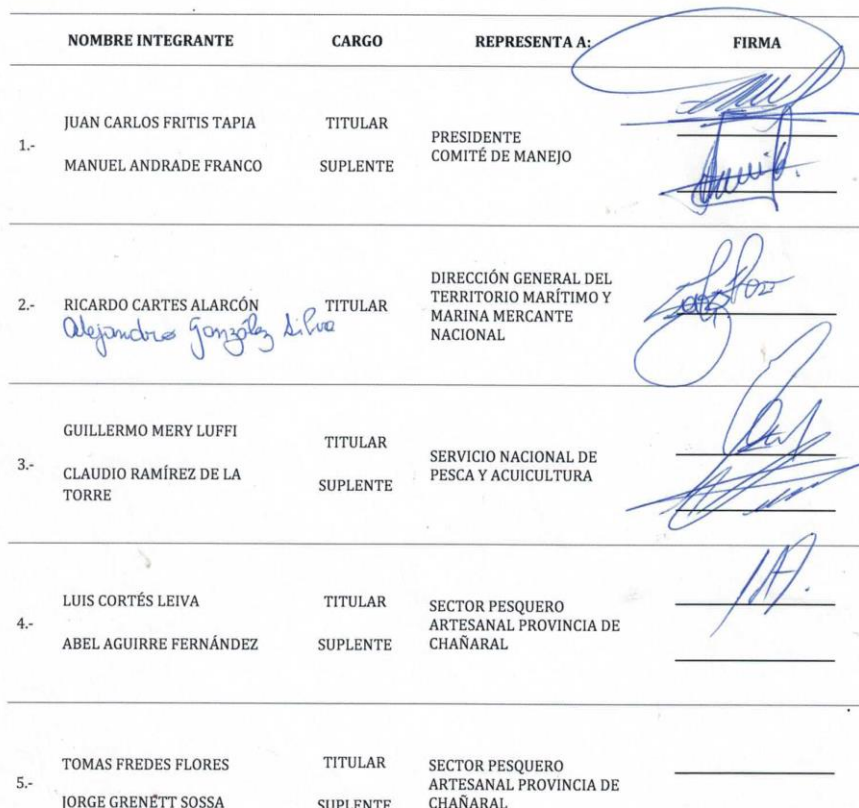 NOMBRE INTEGRANTE CARGO REPRESENTA A: FIRMA
1.-
JUAN CARLOS FRITIS TAPIA TITULAR
MANUEL ANDRADE FRANCO SUPLENTE
PRESIDENTE
COMITÉ DE MANEJO
2.- RICARDO CARTES ALARCÓN TITULAR
Alejandro González Silva
DIRECCIÓN GENERAL DEL
TERRITORIO MARÍTIMO Y
MARINA MERCANTE
NACIONAL
3.-
GUILLERMO MERY LUFFI TITULAR
CLAUDIO RAMÍREZ DE LA
TORRE
SUPLENTE
SERVICIO NACIONAL DE
PESCA Y ACUICULTURA
4.-
LUIS CORTÉS LEIVA TITULAR
ABEL AGUIRRE FERNÁNDEZ SUPLENTE
SECTOR PESQUERO
ARTESANAL PROVINCIA DE
CHAÑARAL
5.-
TOMAS FREDES FLORES TITULAR
JORGE GRENETT SOSSA SUPLENTE
SECTOR PESQUERO
ARTESANAL PROVINCIA DE
CHAÑARAL